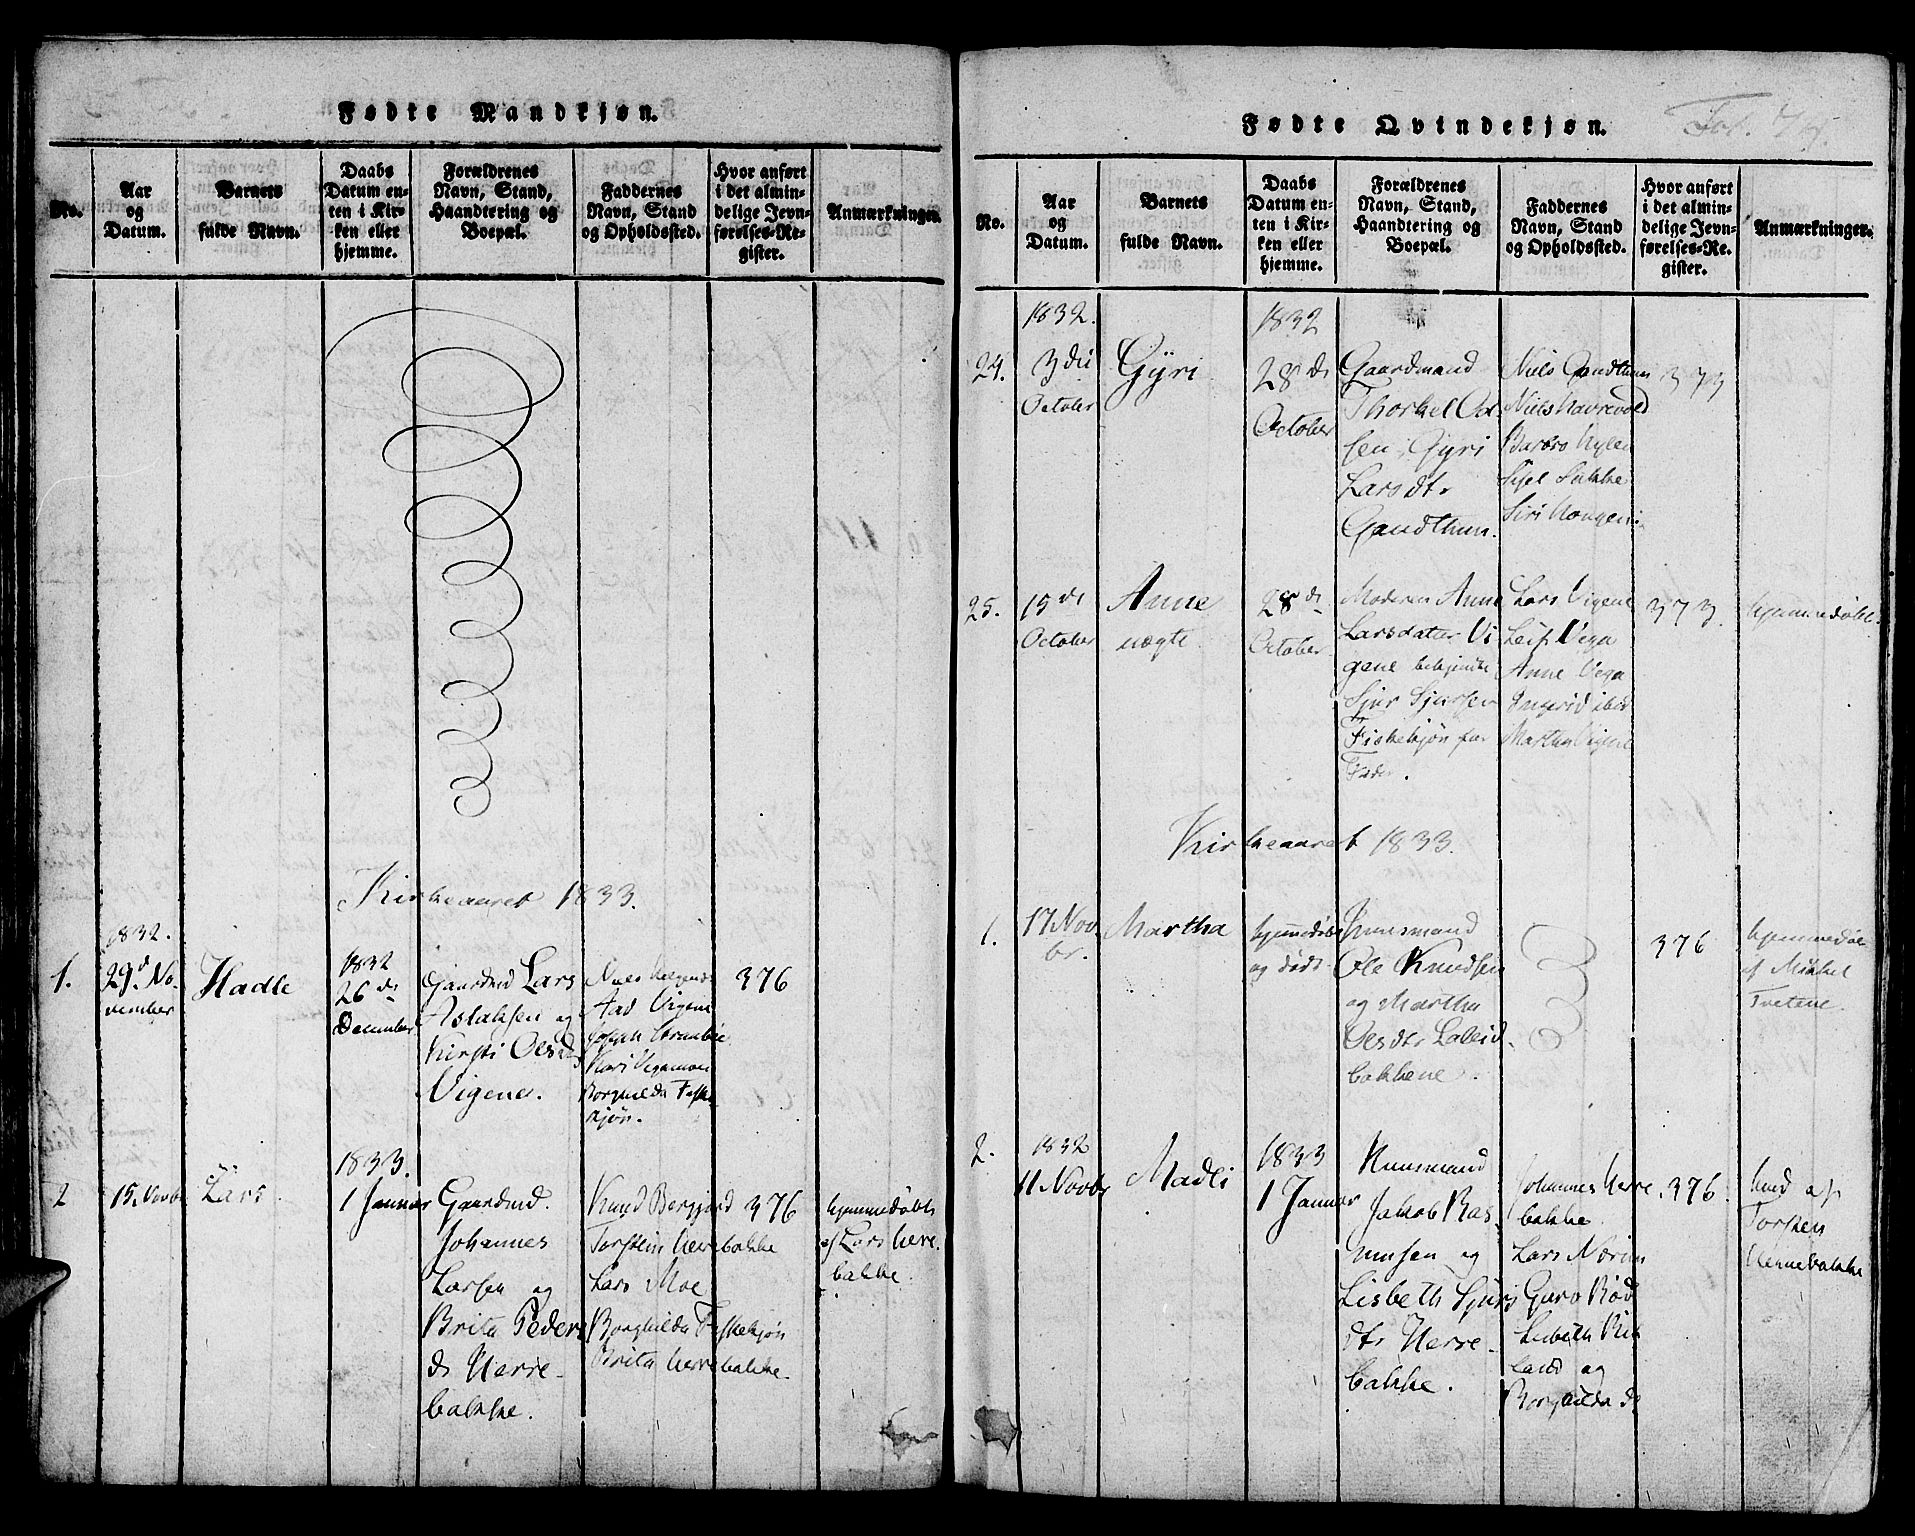 Fødte Mandkjøn.
No.
Aar
og
Datum.
Barnets
fulde Navn.
Daabs
Datum en-
ten i Kir-
ken eller
hjemme.
Forældrenes
Navn, Stand,
Haandtering og
Boepæl.
Faddernes
Navn, Stand
og Opholdssted.
Hvor anført
i det almin-
delige Jevn-
førelses-Re-
gister.
Anmærkninger.
Kirkeaaret 1833.
1.
1832.
29d. No-
vember
Hadle
1832
26 ds
December
Gaardmd Lars
Aslaksen og
Kirsti Olsd
Vigene.
Aad Vigene
Kari Vigemoe
Borghilda Fiske-
kjøn.
376
2
15. Novb
Lars
1833.
1 Januar
Gaardmd.
Johannes
Larsen og
Brita Peders
ds Herre-
bakke.
Knud Bergjord
Torstein Herrebakke
Lars Moe
Borghilda Fiskekjøn
Brita Herrebakke.
376
hjemmedøbt
af Lars Herre-
bakke.
Fødte Qvindekjøn.
Fol.
No.
Aar
og
Datum.
Barnets
fulde Navn.
Daabs
Datum en-
ten i Kir-
ken eller
hjemme.
Forældrenes
Navn, Stand,
Haandtering og
Boepæl.
Faddernes
Navn, Stand
og Opholdssted.
Hvor anført
i det almin-
delige Jevn-
førelses-Re-
gister.
Anmærkninger.
24.
1832.
3die
October
Gyri
1832
28 ds
October
Gaardmand
Thorkel Od-
sen, Gyri
Larsdtr
Gandthun.
Niels Gandthun
Niels Havrevold
Barbro Hylen
Sijel Sukke
Siri Hougen
373
25.
15 de
October
Anne
uægte.
28 ds
October
Moderen Anne
Larsdatter Vi
gene bekjendte
Sjur Sjursen
Fiskekjøn for
Fader.
Lars Vigene
Leif Vega
Anne Vega
Ingerid ibid
Martha Vigene
373.
hjemmedøbt.
Kirkeaaret 1833.
1.
17 Nov.
br.
Martha
hjemmedøbt
og dødt
Huusmand
Ole Knudsen
og Martha
Olsdtr Laleid-
bakkene.
376
hjemmedøbt
af Mikkel
Tvetene.
2.
1832
11 Novbr
Madli
1833
1 Januar
Huusmand
Jakob Ras-
musen og
Lisbeth Sjurs
dtr Herre-
bakke.
Johannes Herre-
bakke
Lars
Guro Rød
Lisbeth
land og
Borghilda ds
376.
hmd af
Torsten
Herrebakke